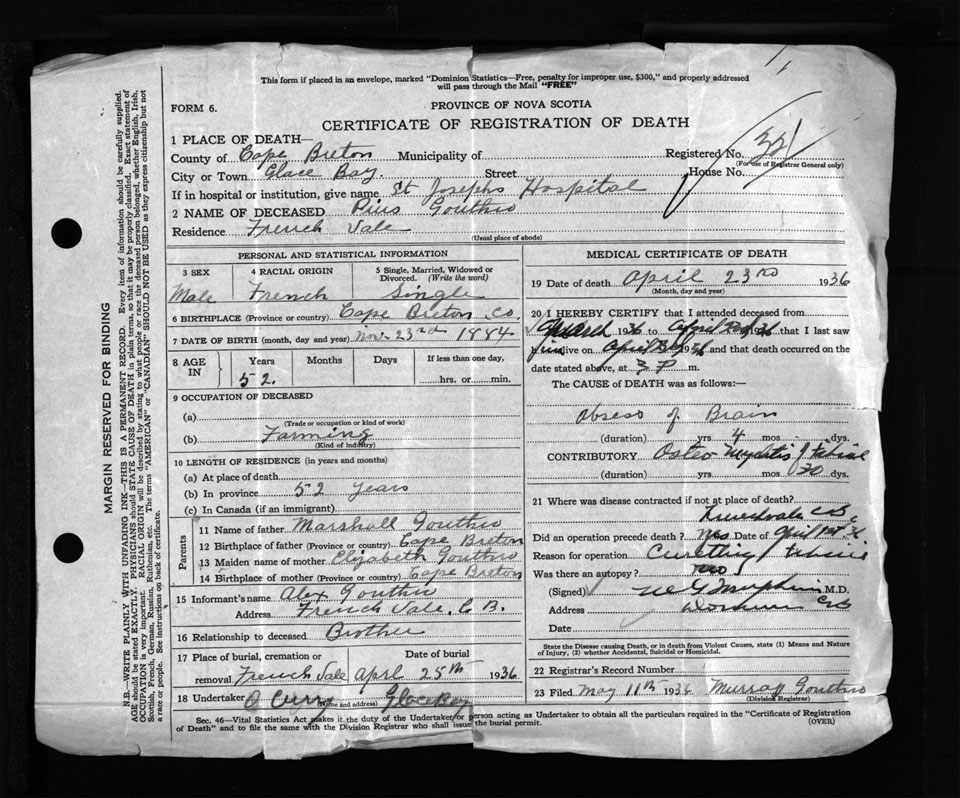 This form if placed in an envelope, marked "Dominion Statistics—Free, penalty for improper use, $300," and properly addressed
will pass through the Mail "FREE"
FORM 6.
PROVINCE OF NOVA SCOTIA
CERTIFICATE OF REGISTRATION OF DEATH
1 PLACE OF DEATH—
County of Cape Breton Municipality of Registered No.
(For use of Registrar General only)
City or Town Glace Bay. Street House No.
If in hospital or institution, give name St Josephs Hospital
2 NAME OF DECEASED Pius Gouthro
Residence French Vale
(Usual place of abode)
PERSONAL AND STATISTICAL INFORMATION
3 SEX 4 RACIAL ORIGIN 5 Single, Married, Widowed or
Divorced. (Write the word)
Male French Single
6 BIRTHPLACE (Province or country) Cape Breton Co.
7 DATE OF BIRTH (month, day and year) Nov. 23rd 1884
8 AGE IN Years Months Days If less than one day,
52. hrs. or min.
9 OCCUPATION OF DECEASED
(a)
(Trade or occupation or kind of work)
(b) Farming
(Kind of industry)
10 LENGTH OF RESIDENCE (in years and months)
(a) At place of death
(b) In province 52 years
(c) In Canada (if an immigrant)
Parents
11 Name of father Marshall Gouthro
12 Birthplace of father (Province or country) Cape Breton
13 Maiden name of mother Elizabeth Gouthro
14 Birthplace of mother (Province or country) Cape Breton
15 Informant's name Alex Gouthro
Address French Vale, C B.
16 Relationship to deceased Brother
17 Place of burial, cremation or removal Date of burial
French Vale April 25th 1936
18 Undertaker Curry Glace Bay
(Name and address)
MEDICAL CERTIFICATE OF DEATH
19 Date of death April 23rd 1936
(Month, day and year)
20 I HEREBY CERTIFY that I attended deceased from
March 1936 to April 1936 that I last saw
him alive on April 19 and that death occurred on the
date stated above, at 3 P m.
The CAUSE of DEATH was as follows:
Absess of Brain
(duration) yrs 4 mos dys.
CONTRIBUTORY Osteo Myelitis
(duration) yrs mos dys
21 Where was disease contracted if not at place of death?
Did an operation precede death? Yes Date of April
Reason for operation Curetting
Was there an autopsy? no
(Signed) M.D.
Address
Date
State the Disease causing Death, or in death from Violent Causes, state (1) Means and Nature
of Injury, (2) whether Accidental, Suicidal or Homicidal.
22 Registrar's Record Number
23 Filed May 11th 1936 Murray Gouthro
(Division Registrar)
Sec. 46—Vital Statistics Act makes it the duty of the Undertaker or person acting as Undertaker to obtain all the particulars required in the "Certificate of Registration
of Death" and to file the same with the Division Registrar who shall issue the burial permit.
(OVER)
MARGIN RESERVED FOR BINDING
N.B.—WRITE PLAINLY WITH UNFADING INK—THIS IS A PERMANENT RECORD. Every item of information should be carefully supplied.
AGE should be stated EXACTLY. PHYSICIANS should STATE CAUSE OF DEATH in plain terms, so that it may be properly classified. Exact statement of
OCCUPATION is very important. RACIAL ORIGIN will be described by stating to what people or race the deceased person belonged, whether English, Irish,
Scottish, French, German, Russian, Ruthenian, etc. The terms "AMERICAN" or "CANADIAN" SHOULD NOT BE USED as they express citizenship but not
a race or people. See instructions on back of certificate.